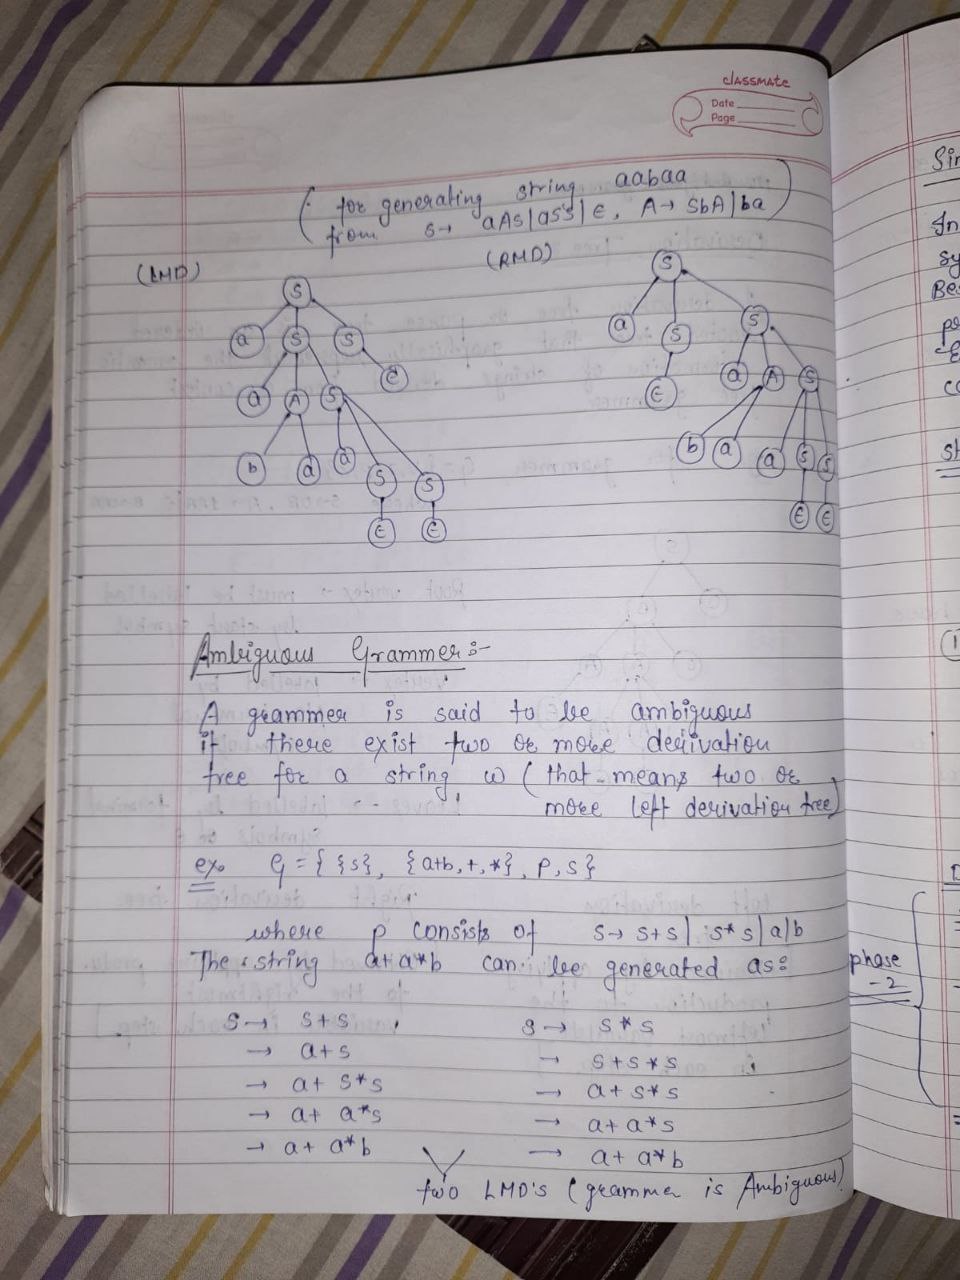 classmate
Date
Page
( for generating string aabaa
from S→ aAS|aSS|ε, A→ SbA|ba )
(LMD)
(RMD)
S
a S S
a A S ε
b a a S S
ε ε
S
a S S
ε a A S
b a a S S
ε ε
Ambiguous Grammer:-
A grammer is said to be ambiguous
if there exist two or more derivation
tree for a string w (that means two or
more left derivation tree)
ex. G = { {s}, {a+b, +, *}, P, S }
where P consists of S→ S+S | S*S | a|b
The string a+a*b can be generated as:
S → S+S
→ a+S
→ a+ S*S
→ a+ a*S
→ a+ a*b
S → S*S
→ S+S*S
→ a+ S*S
→ a+ a*S
→ a+ a*b
two LMD's (grammer is Ambiguous)
In
sy
Bes
co
phase
-2